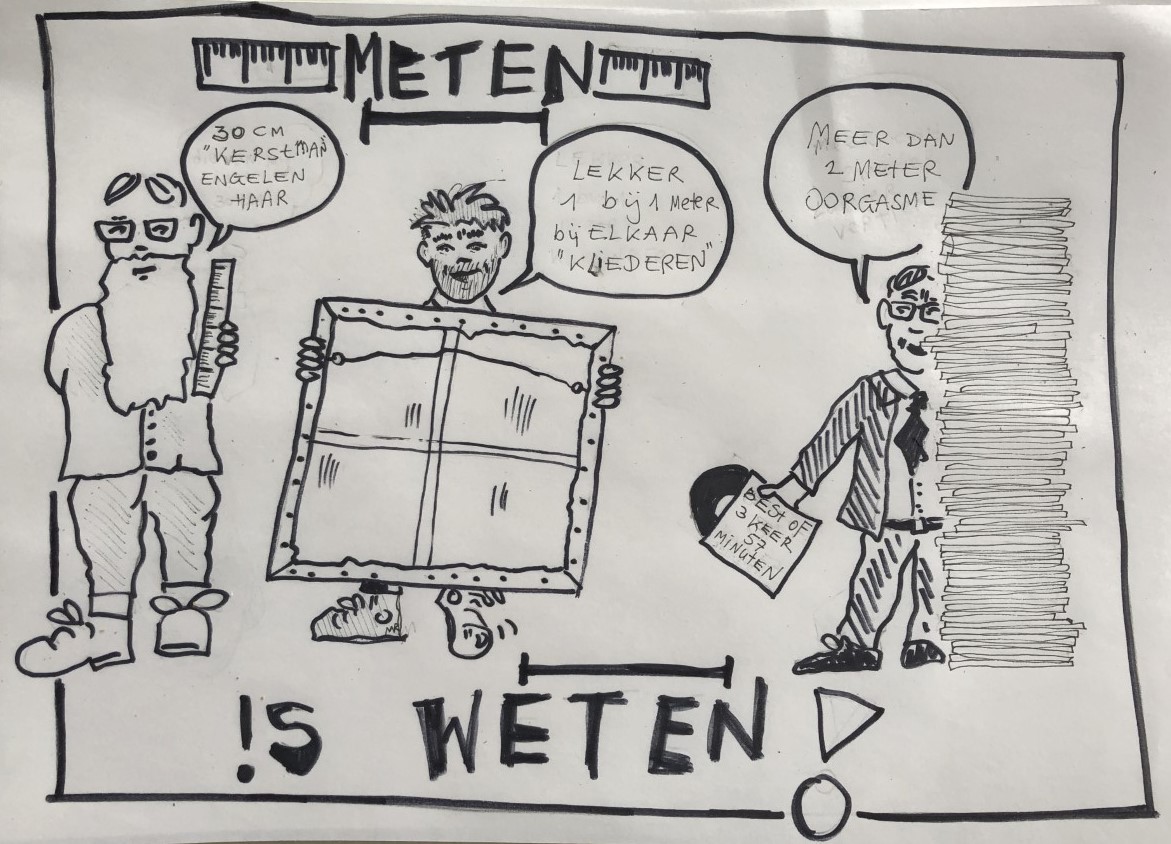 METEN
30 CM
"KERSTMAN
ENGELEN
HAAR
LEKKER
1 bij 1 METER
bij ELKAAR
"KLIEDEREN"
MEER DAN
2 METER
OORGASME
BEST OF
3 KEER
57
MINUTEN
!S WETEN